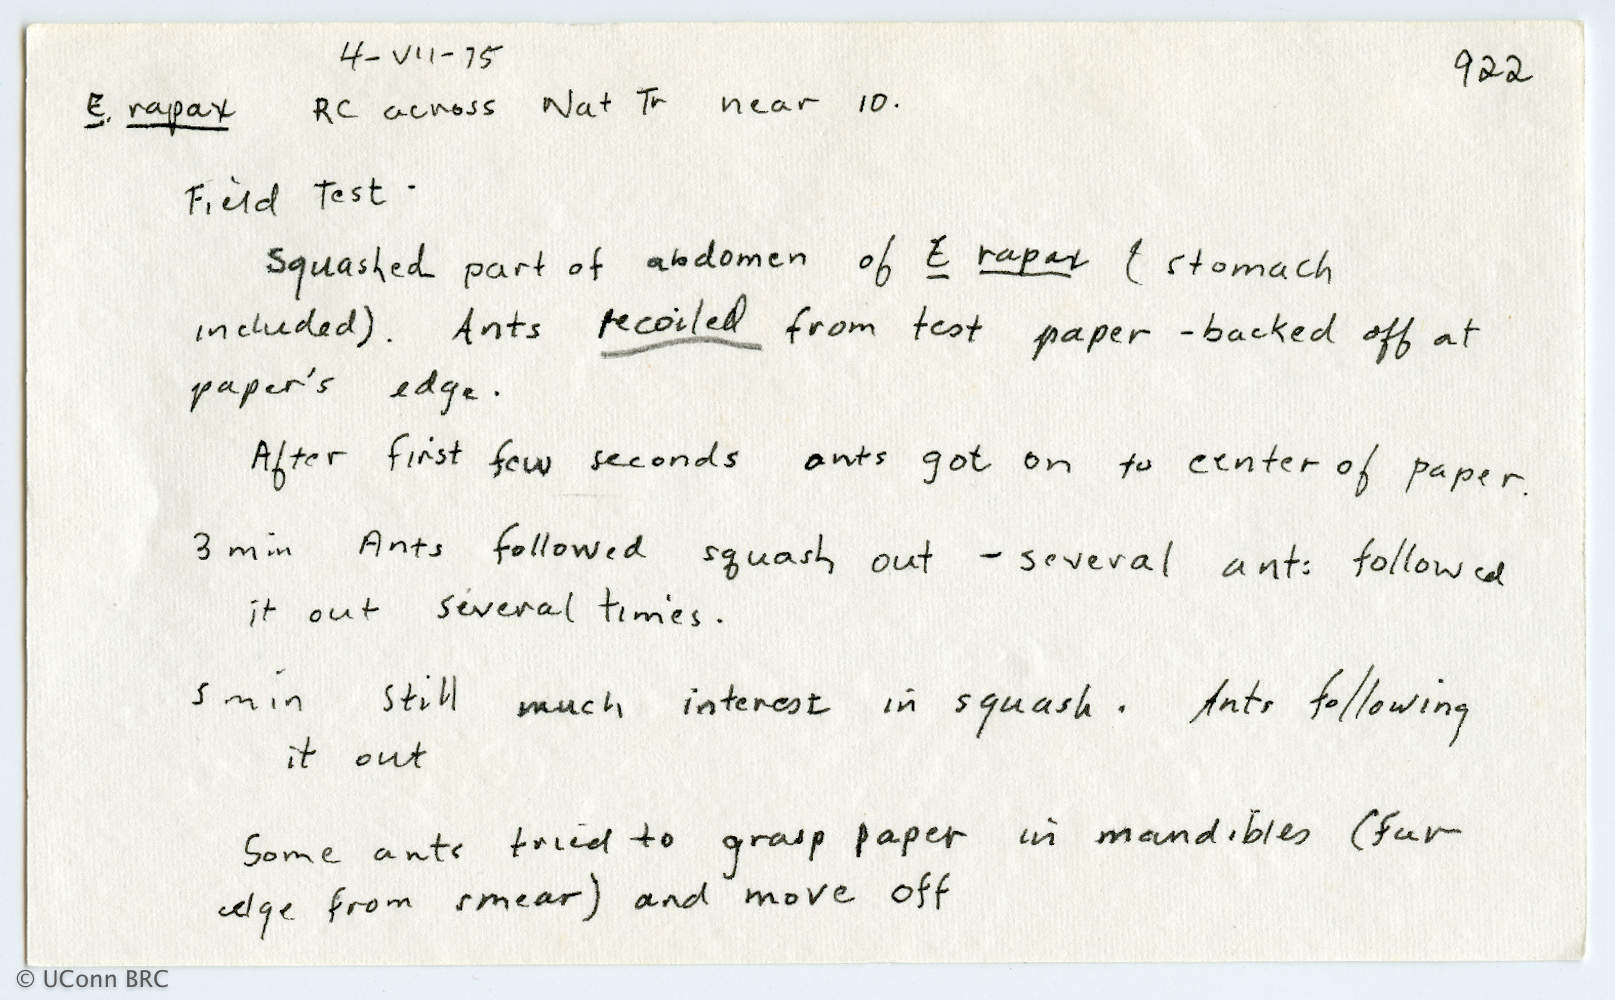 4-VII-75
922
E. rapax RC across Nat Tr near 10.
Field Test.
Squashed part of abdomen of E rapax (stomach
included). Ants recoiled from test paper - backed off at
paper's edge.
After first few seconds ants got on to center of paper.
3 min Ants followed squash out - several ants followed
it out several times.
5 min Still much interest in squash. Ants following
it out
Some ants tried to grasp paper in mandibles (far
edge from smear) and move off
© UConn BRC